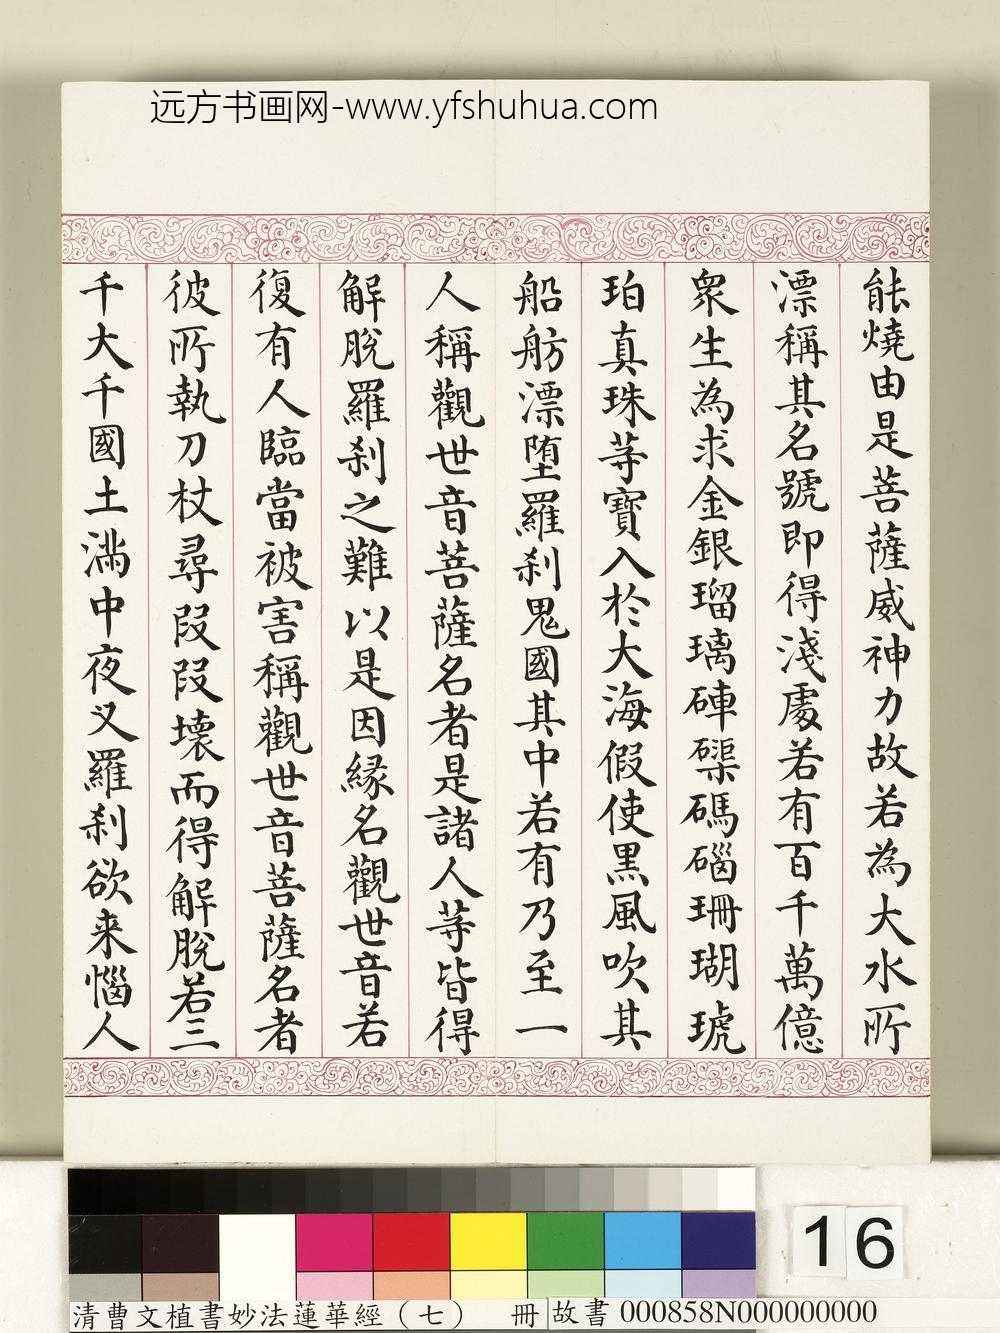 远方书画网-www.yfshuhua.com
能燒由是菩薩威神力故若為大水所
漂稱其名號即得淺處若有百千萬億
眾生為求金銀瑠璃硨磲碼碯珊瑚琥
珀真珠等寶入於大海假使黑風吹其
船舫漂堕羅刹鬼國其中若有乃至一
人稱觀世音菩薩名者是諸人等皆得
解脫羅刹之難以是因緣名觀世音若
復有人臨當被害稱觀世音菩薩名者
彼所執刀杖尋段段壞而得解脫若三
千大千國土滿中夜叉羅刹欲来惱人
16
清曹文植書妙法蓮華經（七） 冊 故書 000858N000000000